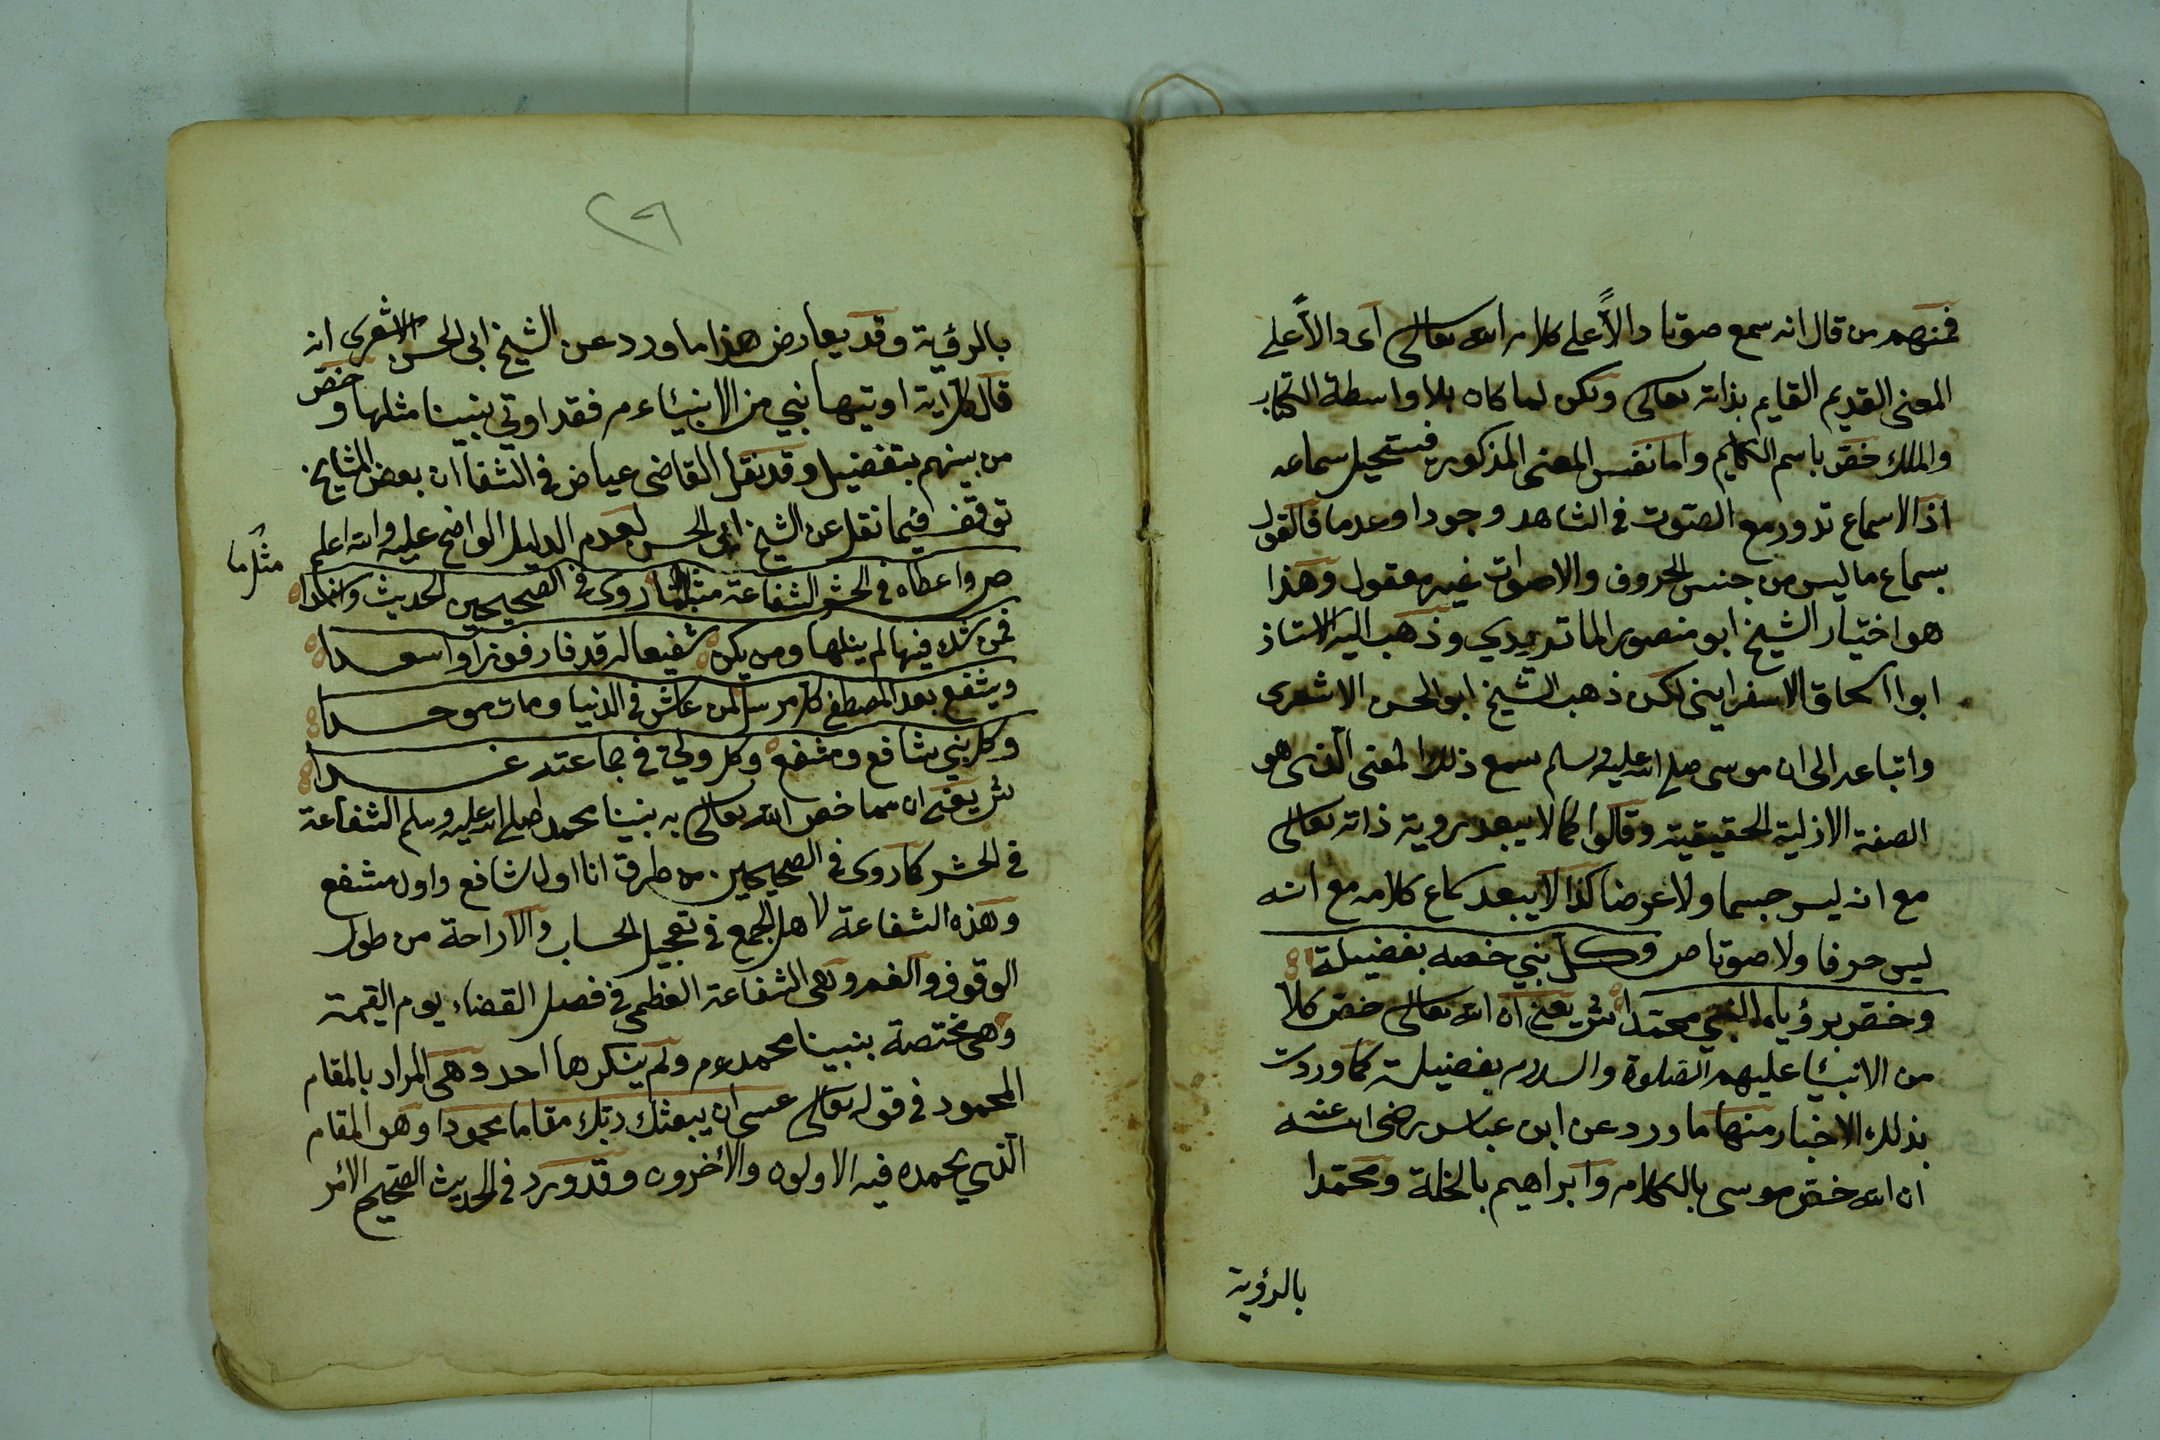 فمنهم من قال انه سمع صوتا دالاً على كلام الله تعالى اى دالاً على
المعنى القديم القايم بذاته تعالى ولكن لما كان بلا واسطة الكتاب
والملك خصّ باسم الكليم واما نفس المعنى المذكور فيستحيل سماعه
اذ الاسماع تدور مع الصّوت فى الشاهد وجودا وعدما فالقول
بسماع ما ليس من جنس الحروف والاصوات غير معقول وهذا
هو اختيار الشيخ ابو منصور الماتريدي وذهب اليه الاستاذ
ابو اسحاق الاسفراينى لكن ذهب الشيخ ابو الحسن الاشعرى
واتباعه الى ان موسى صلى الله عليه وسلم سمع ذلك المعنى الّذى هو
الصفة الازلية الحقيقية وقالوا كما لا يبعد رؤية ذاته تعالى
مع انه ليس جسما ولا عرضا كذا لا يبعد سماع كلامه مع انه
ليس حرفا ولا صوتا ص وكل نبي خصه بفضيلة
وخصّ برؤياه النبي محمّدا ش يعنى ان الله تعالى خصّ كلا
من الانبيا عليهم الصّلوة والسلام بفضيلة كما وردت
بذلك الاخبار منها ما ورد عن ابن عباس رضى الله عنه
ان الله خصّ موسى بالكلام وابراهيم بالخلة ومحمّدا
بالرؤية
٢٩
بالرؤية وقد يعارض هذا ما ورد عن الشيخ ابى الحسن الاشعرى انه
قال كل آية اوتيها نبي من الانبيآء ءم فقد اوتي نبينا مثلها وخصّ
من بينهم بتفضيل وقد نقل القاضى عياض فى الشفا ان بعض المشايخ
توقف فيما نقل عن الشيخ ابى الحسن لعدم الدليل الواضح عليه والله اعلم
ص واعطاه فى الحشر الشفاعة مثلما روى فى الصحيحين الحديث واسندا
مثل ما
فمن شك فيها لم ينلها ومن يكن شفيعا له قد فاز فوزا واسعدا
ويشفع بعد المصطفى كل مرسل لمن عاش فى الدنيا ومات موحدا
وكل نبي شافع ومشفع وكل ولى فى جماعته غدا
ش يعنى ان مما خص الله تعالى به نبينا محمدا صلى الله عليه وسلم الشفاعة
فى الحشر كما روى فى الصحيحين من طرق انا اول شافع واول مشفع
وهذه الشفاعة لاهل الجمع فى تعجيل الحساب والاراحة من طول
الوقوف والغم وهى الشفاعة العظمى فى فصل القضاء يوم القيمة
وهى مختصة بنبينا محمد ءم ولم ينكرها احد وهى المراد بالمقام
المحمود فى قوله تعالى عسى ان يبعثك ربّك مقاما محمودا وهو المقام
الّذي يحمده فيه الاولون والآخرون وقد ورد فى الحديث الصّحيح الامر